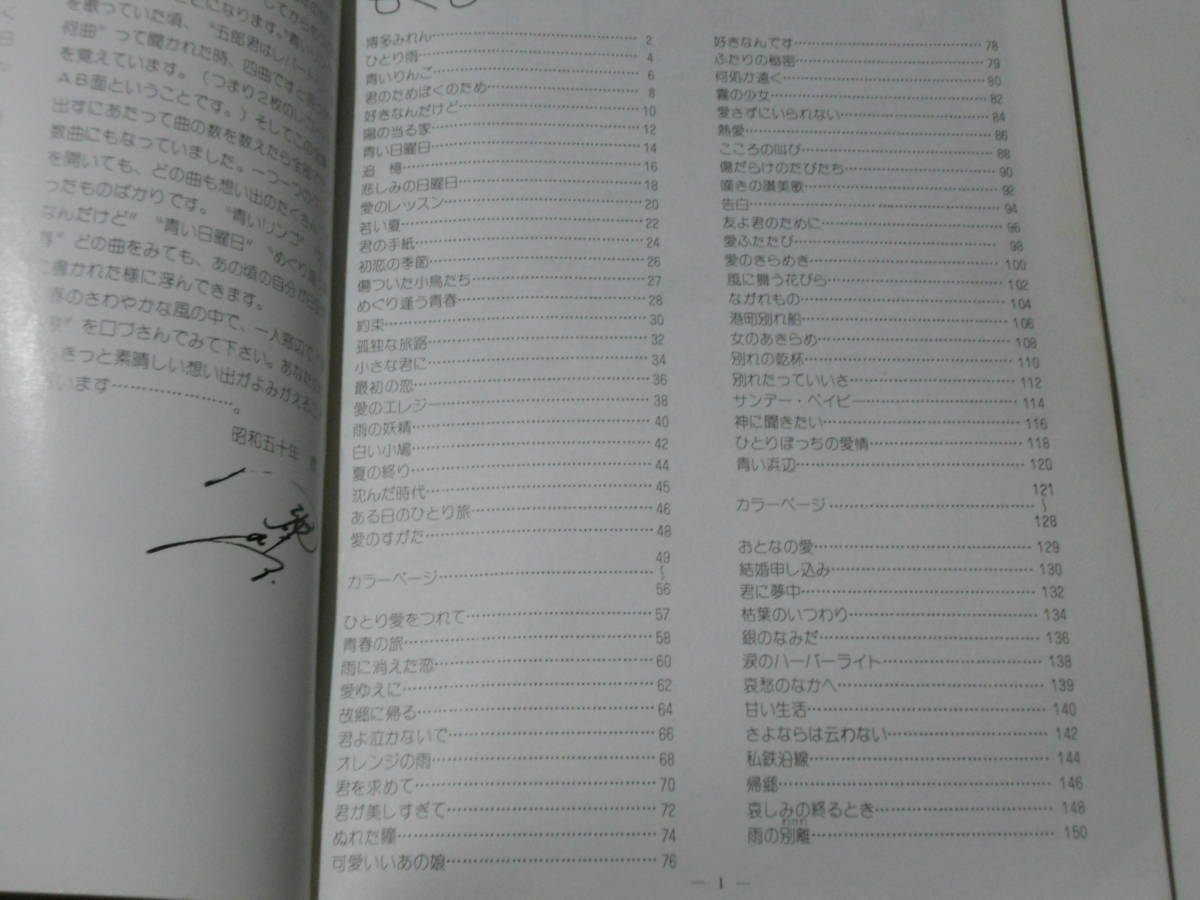 してからも
ことになります。"青いリン
を歌っていた頃、"五郎君はレパート
何曲" って聞かれた時、四曲ですと
を覚えています。(つまり2枚のレ
AB面ということです。) そしてこの
出すにあたって曲の数を数えたら全
数曲にもなっていました。一つ一つの
を開いても、どの曲も想い出のたくさん
ったものばかりです。"青いリンゴ"
なんだけど" "青い日曜日" "めぐり
春" どの曲をみても、あの頃の自分が
に書かれた様に浮んできます。
春のさわやかな風の中で、一人窓辺で
を口づさんでみて下さい。あなたの
きっと素晴しい想い出がよみがえる
います……………。
昭和五十年
もくじ
博多みれん……2
ひとり雨……4
青いりんご……6
君のためぼくのため……8
好きなんだけど……10
陽の当る家……12
青い日曜日……14
追 憶……16
悲しみの日曜日……18
愛のレッスン……20
若い夏……22
君の手紙……24
初恋の季節……26
傷ついた小鳥たち……27
めぐり逢う青春……28
約束……30
孤独な旅路……32
小さな君に……34
最初の恋……36
愛のエレジー……38
雨の妖精……40
白い小鳩……42
夏の終り……44
沈んだ時代……45
ある日のひとり旅……46
愛のすがた……48
カラーページ……49〜56
ひとり愛をつれて……57
青春の旅……58
雨に消えた恋……60
愛ゆえに……62
故郷に帰る……64
君よ泣かないで……66
オレンジの雨……68
君を求めて……70
君が美しすぎて……72
ぬれた瞳……74
可愛いいあの娘……76
好きなんです……78
ふたりの秘密……79
何処か遠く……80
霧の少女……82
愛さずにいられない……84
熱愛……86
こころの叫び……88
傷だらけのたびだち……90
嘆きの讃美歌……92
告白……94
友よ君のために……96
愛ふたたび……98
愛のきらめき……100
風に舞う花びら……102
ながれもの……104
港町別れ船……106
女のあきらめ……108
別れの乾杯……110
別れたっていいさ……112
サンデー・ベイビー……114
神に聞きたい……116
ひとりぼっちの愛情……118
青い浜辺……120
カラーページ……121〜128
おとなの愛……129
結婚申し込み……130
君に夢中……132
枯葉のいつわり……134
銀のなみだ……136
涙のハーバーライト……138
哀愁のなかへ……139
甘い生活……140
さよならは云わない……142
私鉄沿線……144
帰郷……146
哀しみの終るとき……148
雨の別離(わかれ)……150
— 1 —